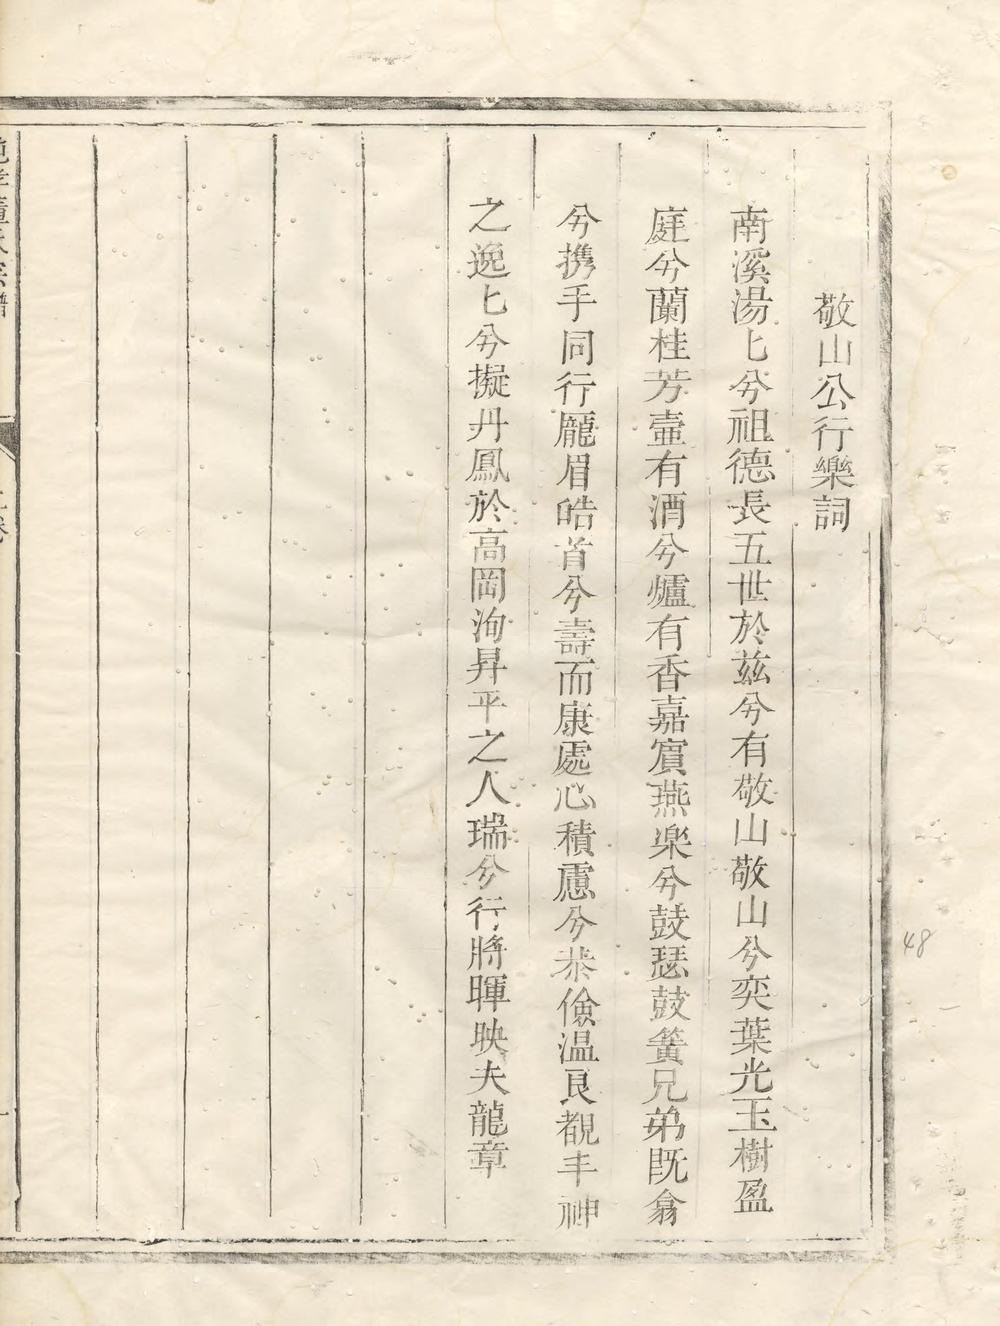 敬山公行樂詞
南溪湯匕兮祖德長五世於兹兮有敬山敬山兮奕葉光玉樹盈
庭兮蘭桂芳壷有酒兮爐有香嘉賔燕楽兮鼓瑟鼓簧兄弟既翕
兮携手同行厖眉皓首兮壽而康處心積慮兮恭儉温良覩丰神
之逸匕兮擬丹鳳於高岡洵昇平之人瑞兮行將暉映夫龍章
48